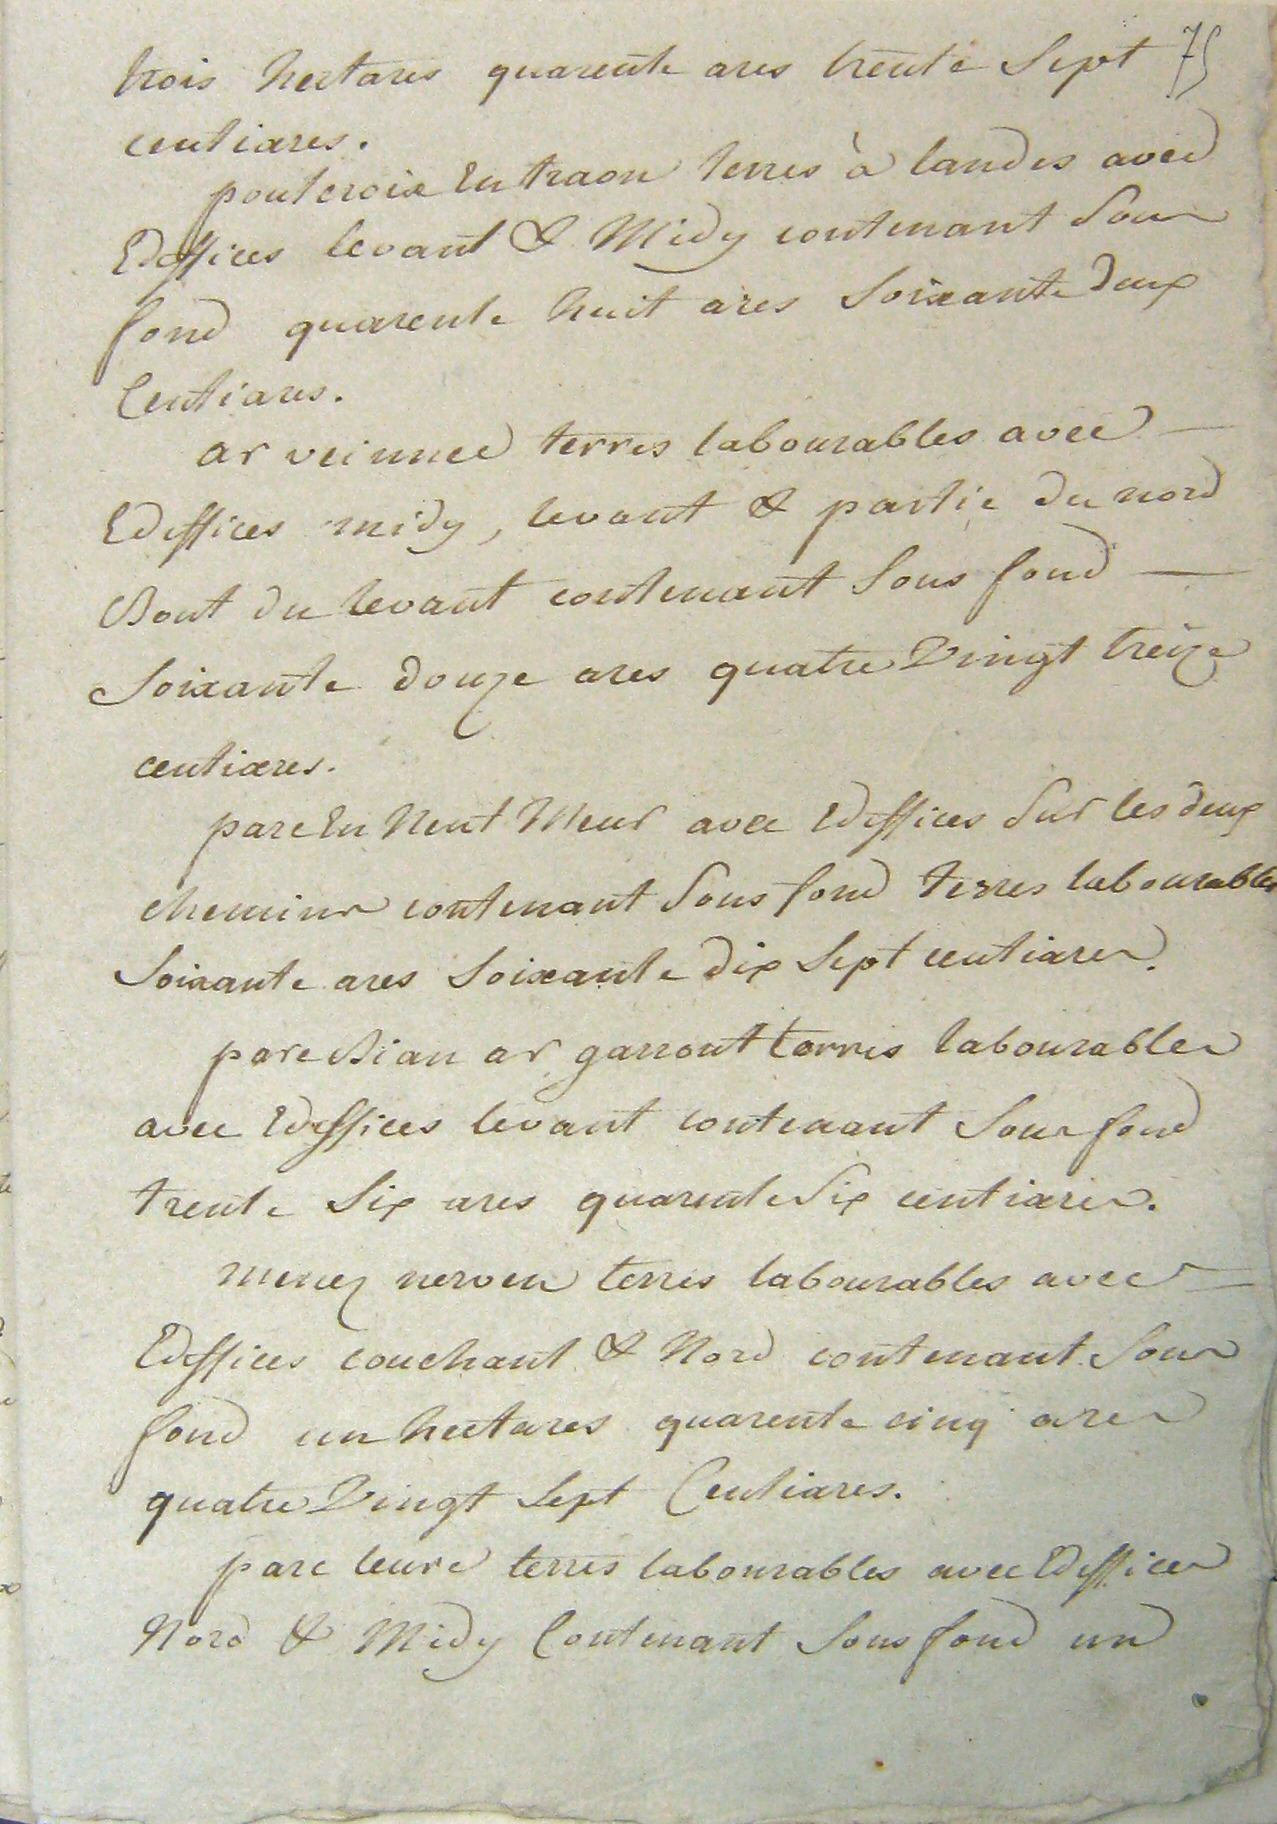 trois hectares quarente ares trente Sept 75
centiares.
poulcroix En traon terres à landes avec
Ediffices levant & Midy contenant Sous
fond quarente huit ares Soixante deux
Centiares.
ar veinnec terres labourables avec
Ediffices midy, levant & partie du nord
Bout du levant contenant Sous fond
Soixante douze ares quatre Vingt treize
centiares.
parc En Neut Meur avec Ediffices Sur les deux
chemins contenant Sous fond terres labourables
Soixante ares Soixante dix Sept centiares.
parc Bian ar garront terres labourables
avec Ediffices levant contenant Sous fond
trente Six ares quarente Six centiares.
menez nerven terres labourables avec
Ediffices couchant & Nord contenant Sous
fond un hectares quarente cinq ares
quatre Vingt Sept Centiares.
parc leure terres labourables avec Ediffices
Nord & Midy Contenant Sous fond un